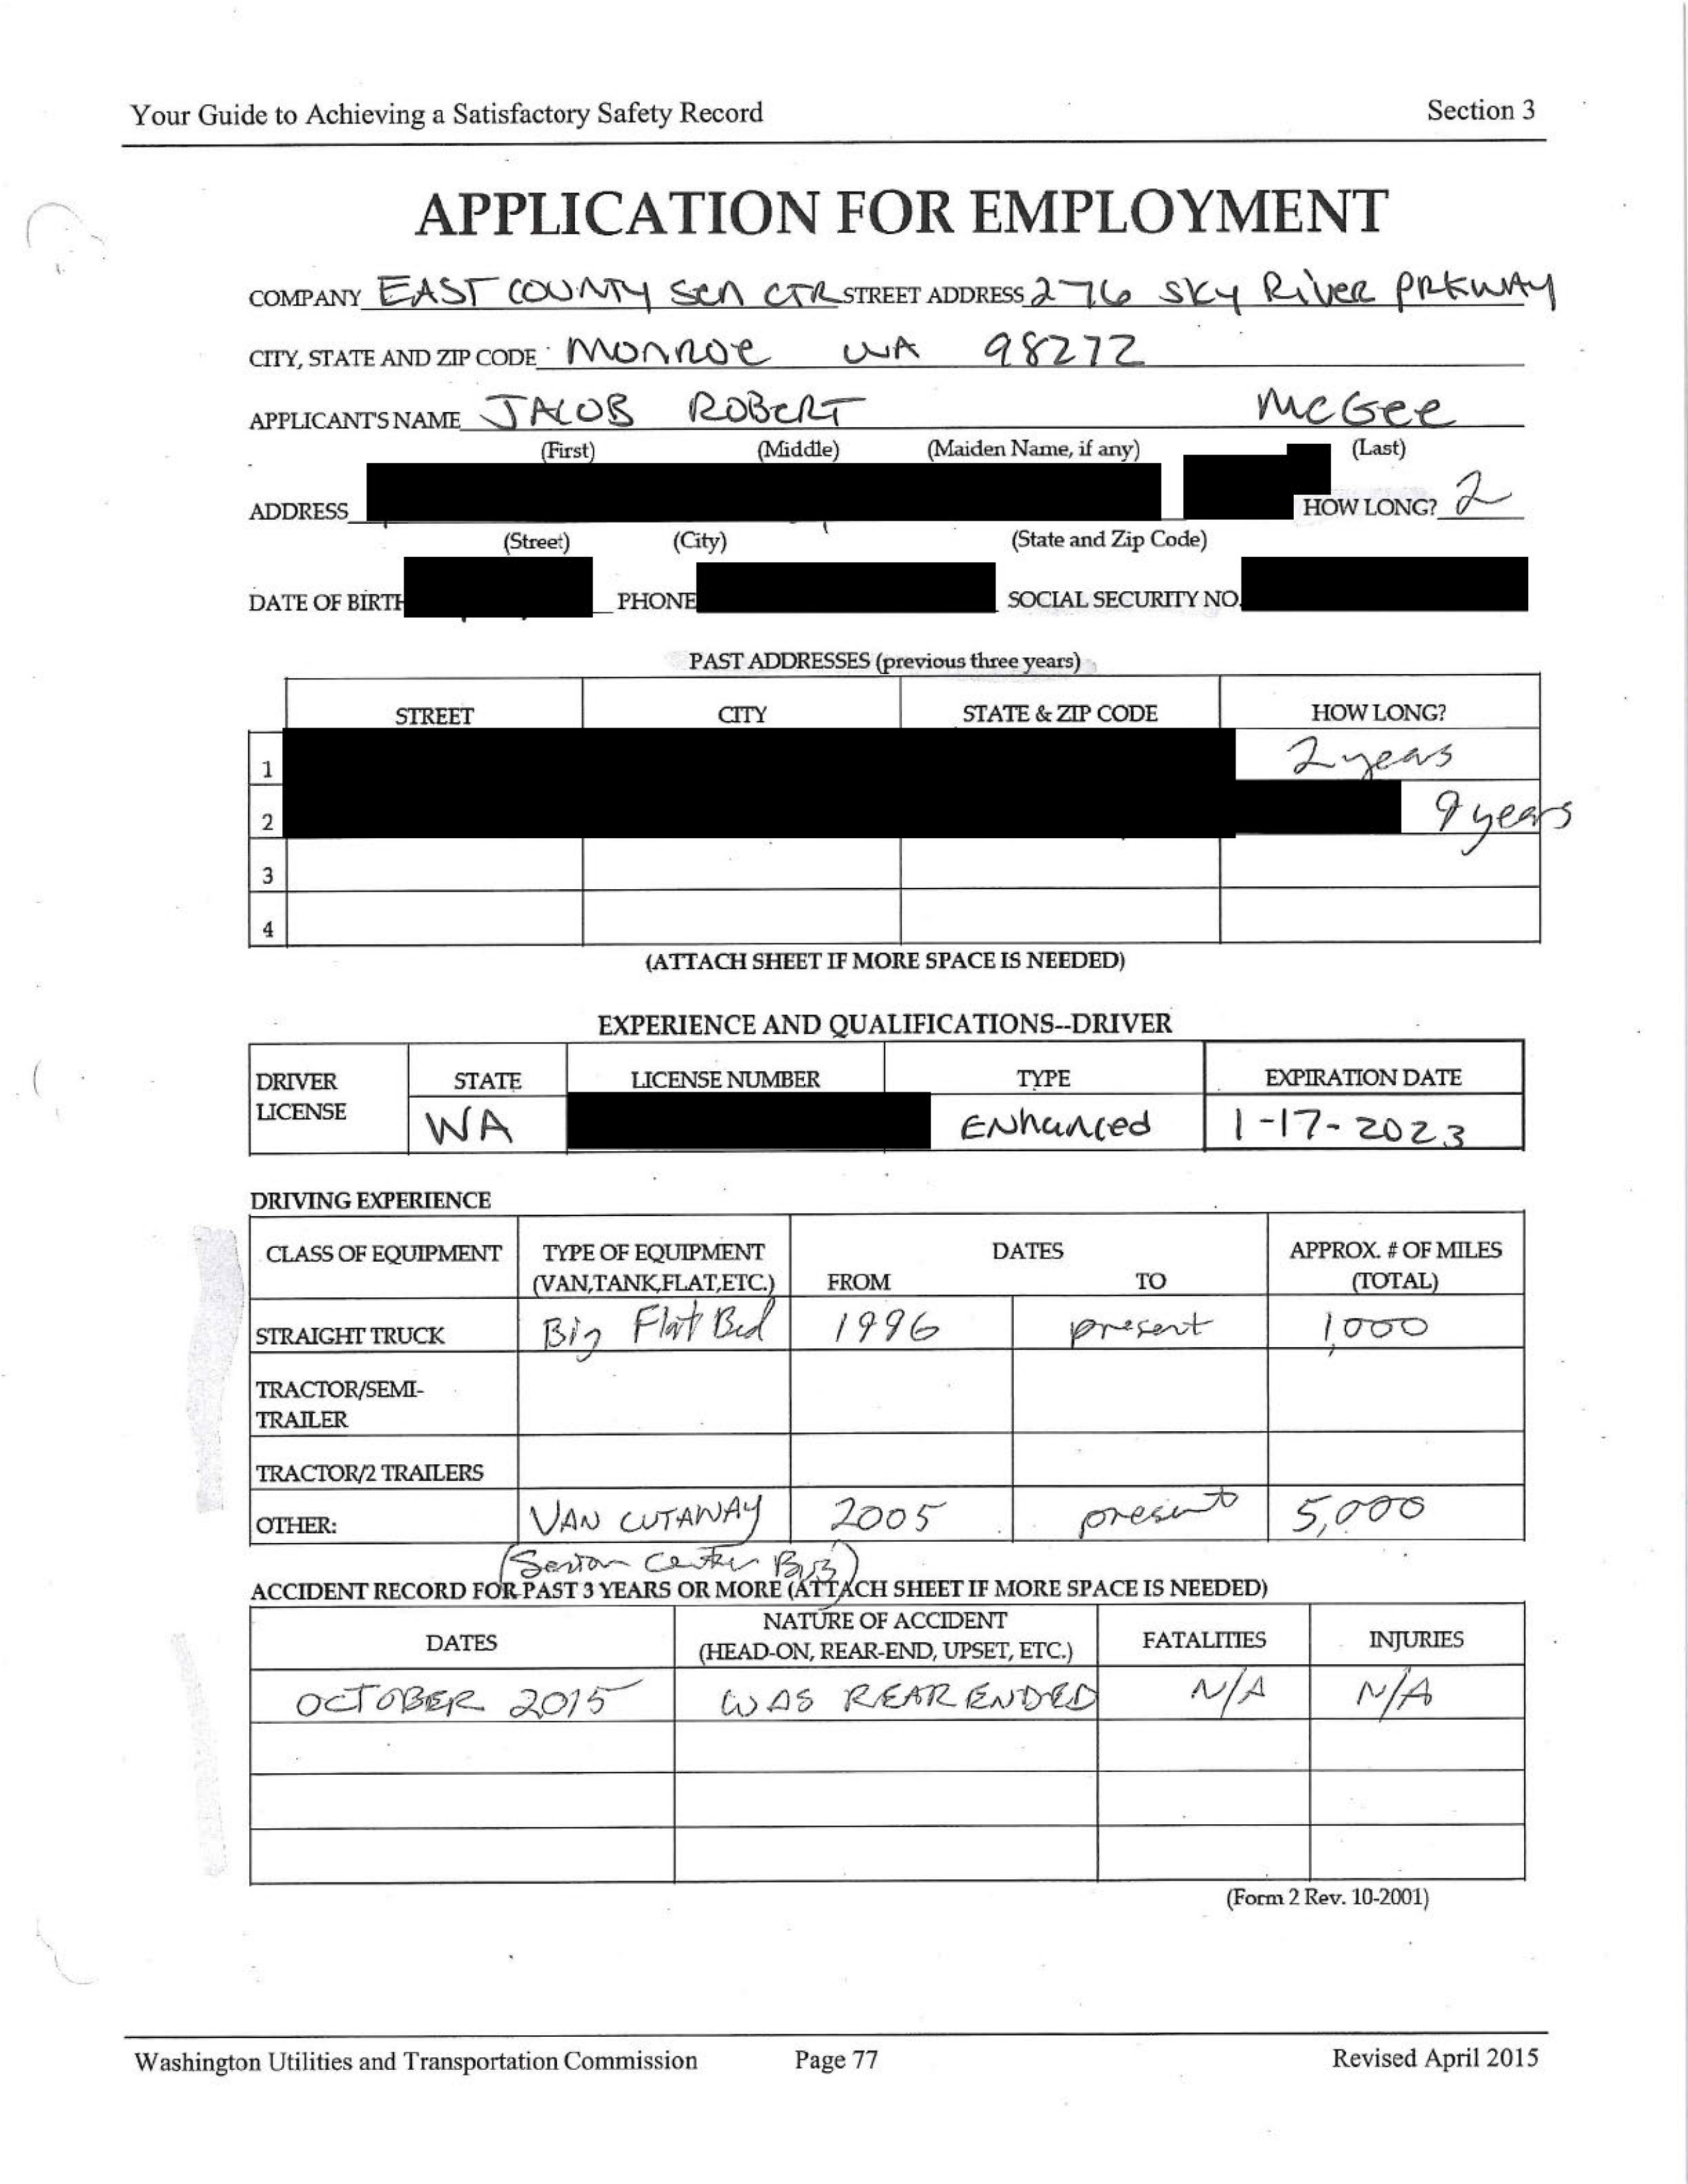 Your Guide to Achieving a Satisfactory Safety Record Section 3
APPLICATION FOR EMPLOYMENT
COMPANY EAST COUNTY Sen CTR STREET ADDRESS 276 Sky River PRKWAY
CITY, STATE AND ZIP CODE Monroe WA 98272
APPLICANTS NAME JACOB ROBERT McGee
(First) (Middle) (Maiden Name, if any) (Last)
ADDRESS HOW LONG? 2
(Street) (City) (State and Zip Code)
DATE OF BIRTH PHONE SOCIAL SECURITY NO.
PAST ADDRESSES (previous three years)
STREET CITY STATE & ZIP CODE HOW LONG?
1 2 years
2 9 years
3
4
(ATTACH SHEET IF MORE SPACE IS NEEDED)
EXPERIENCE AND QUALIFICATIONS--DRIVER
DRIVER LICENSE STATE LICENSE NUMBER TYPE EXPIRATION DATE
WA Enhanced 1-17-2023
DRIVING EXPERIENCE
CLASS OF EQUIPMENT TYPE OF EQUIPMENT DATES APPROX. # OF MILES
(VAN,TANK,FLAT,ETC.) FROM TO (TOTAL)
STRAIGHT TRUCK Big Flat Bed 1996 present 1,000
TRACTOR/SEMI-
TRAILER
TRACTOR/2 TRAILERS
OTHER: VAN CUTAWAY 2005 present 5,000
(Senior Center Bus)
ACCIDENT RECORD FOR PAST 3 YEARS OR MORE (ATTACH SHEET IF MORE SPACE IS NEEDED)
DATES NATURE OF ACCIDENT FATALITIES INJURIES
(HEAD-ON, REAR-END, UPSET, ETC.)
OCTOBER 2015 WAS REAR ENDED N/A N/A
(Form 2 Rev. 10-2001)
Washington Utilities and Transportation Commission Page 77 Revised April 2015